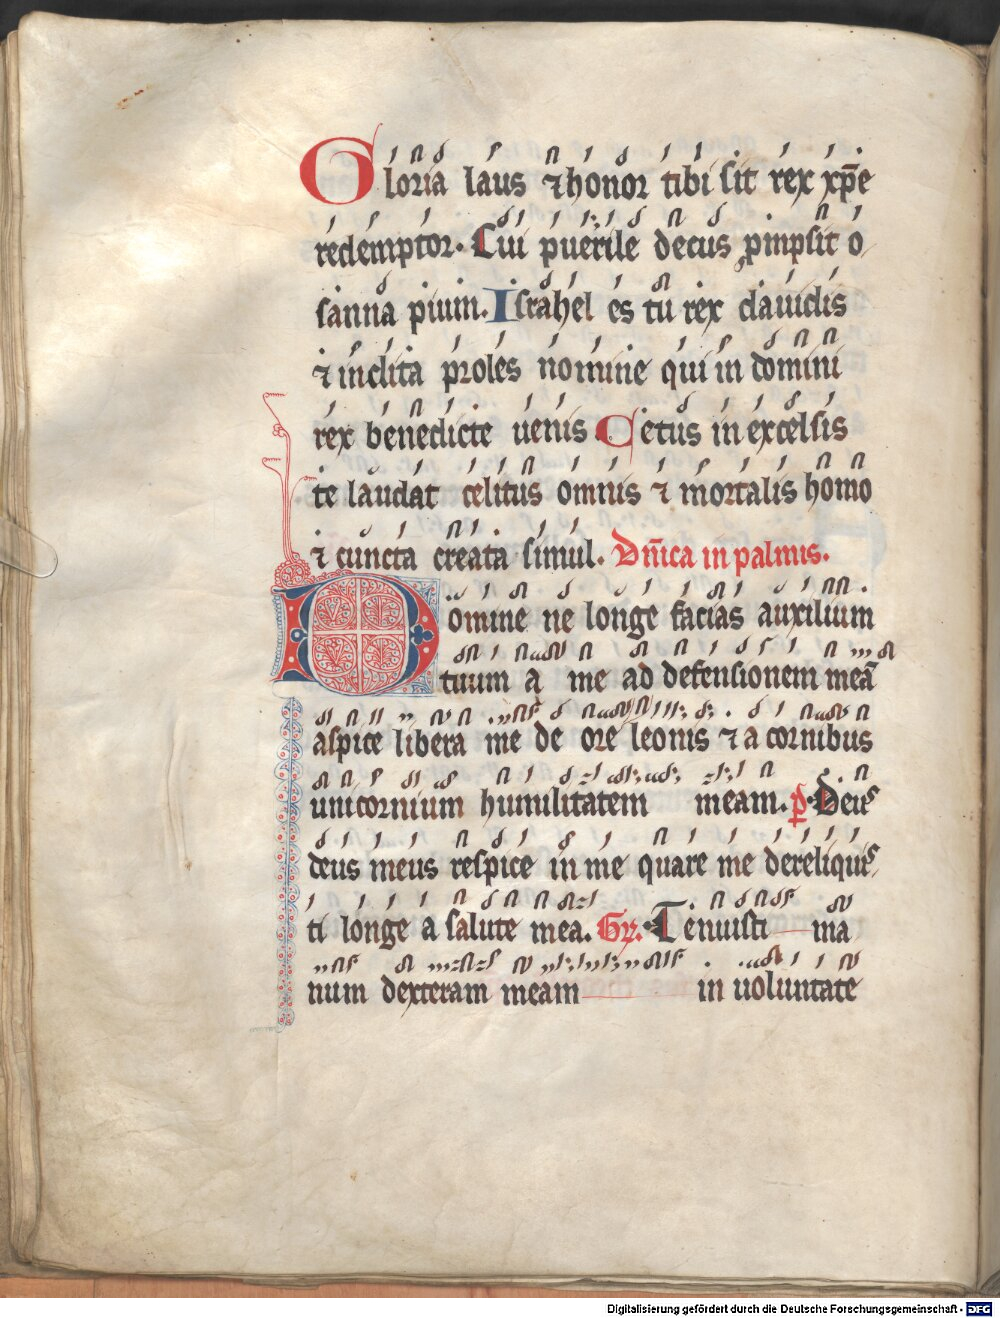 Gloria laus ⁊ honor tibi sit rex xp̄e
redemptor. Cui puerile decus ꝓmpsit o
sanna pium. Israhel es tu rex dauidis
⁊ inclita proles nomine qui in domini
rex benedicte uenis Cetus in excelsis
te laudat celitus omnis ⁊ mortalis homo
⁊ cuncta creata simul. Dn̄ica in palmis.
Domine ne longe facias auxilium
tuum a me ad defensionem meā
aspice libera me de ore leonis ⁊ a cornibus
unicornium humilitatem meam. p̄. Deus
deus meus respice in me quare me dereliquis
ti longe a salute mea. Gr. Tenuisti ma
num dexteram meam in uoluntate
Digitalisierung gefördert durch die Deutsche Forschungsgemeinschaft - DFG